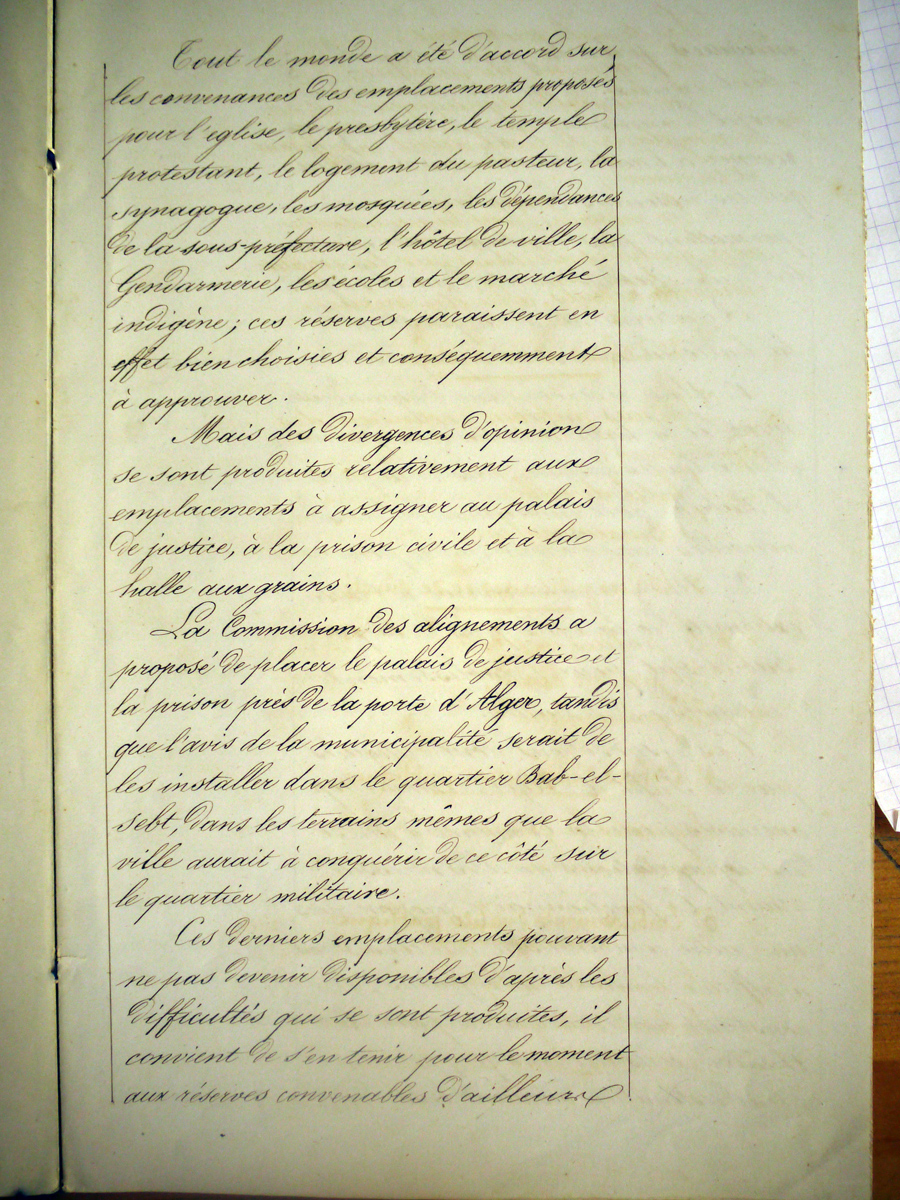 Tout le monde a été d'accord sur
les convenances des emplacements proposés
pour l'eglise, le presbytère, le temple
protestant, le logement du pasteur, la
synagogue, les mosquées, les dépendances
de la sous-préfecture, l'hôtel de ville, la
Gendarmerie, les écoles et le marché
indigène; ces réserves paraissent en
effet bien choisies et conséquemment
à approuver.
Mais des divergences d'opinion
se sont produites relativement aux
emplacements à assigner au palais
de justice, à la prison civile et à la
halle aux grains.
La Commission des alignements a
proposé de placer le palais de justice et
la prison près de la porte d'Alger, tandis
que l'avis de la municipalité serait de
les installer dans le quartier Bab-el-
sebt, dans les terrains mêmes que la
ville aurait à conquérir de ce côté sur
le quartier militaire.
Ces derniers emplacements pouvant
ne pas devenir disponibles d'après les
difficultés qui se sont produites, il
convient de s'en tenir pour le moment
aux réserves convenables d'ailleurs